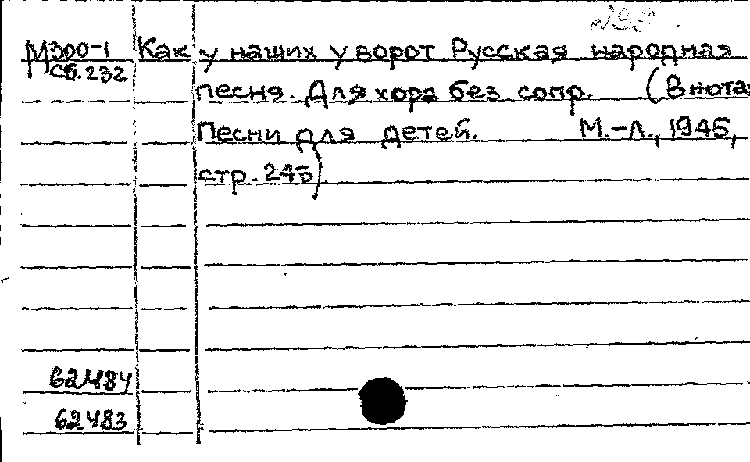 М300-1 Как у наших у ворот Русская народная
Сб.232
песня. Для хора без сопр. (В нота
Песни для детей. М.-Л., 1945,
стр. 245)
62484
62483